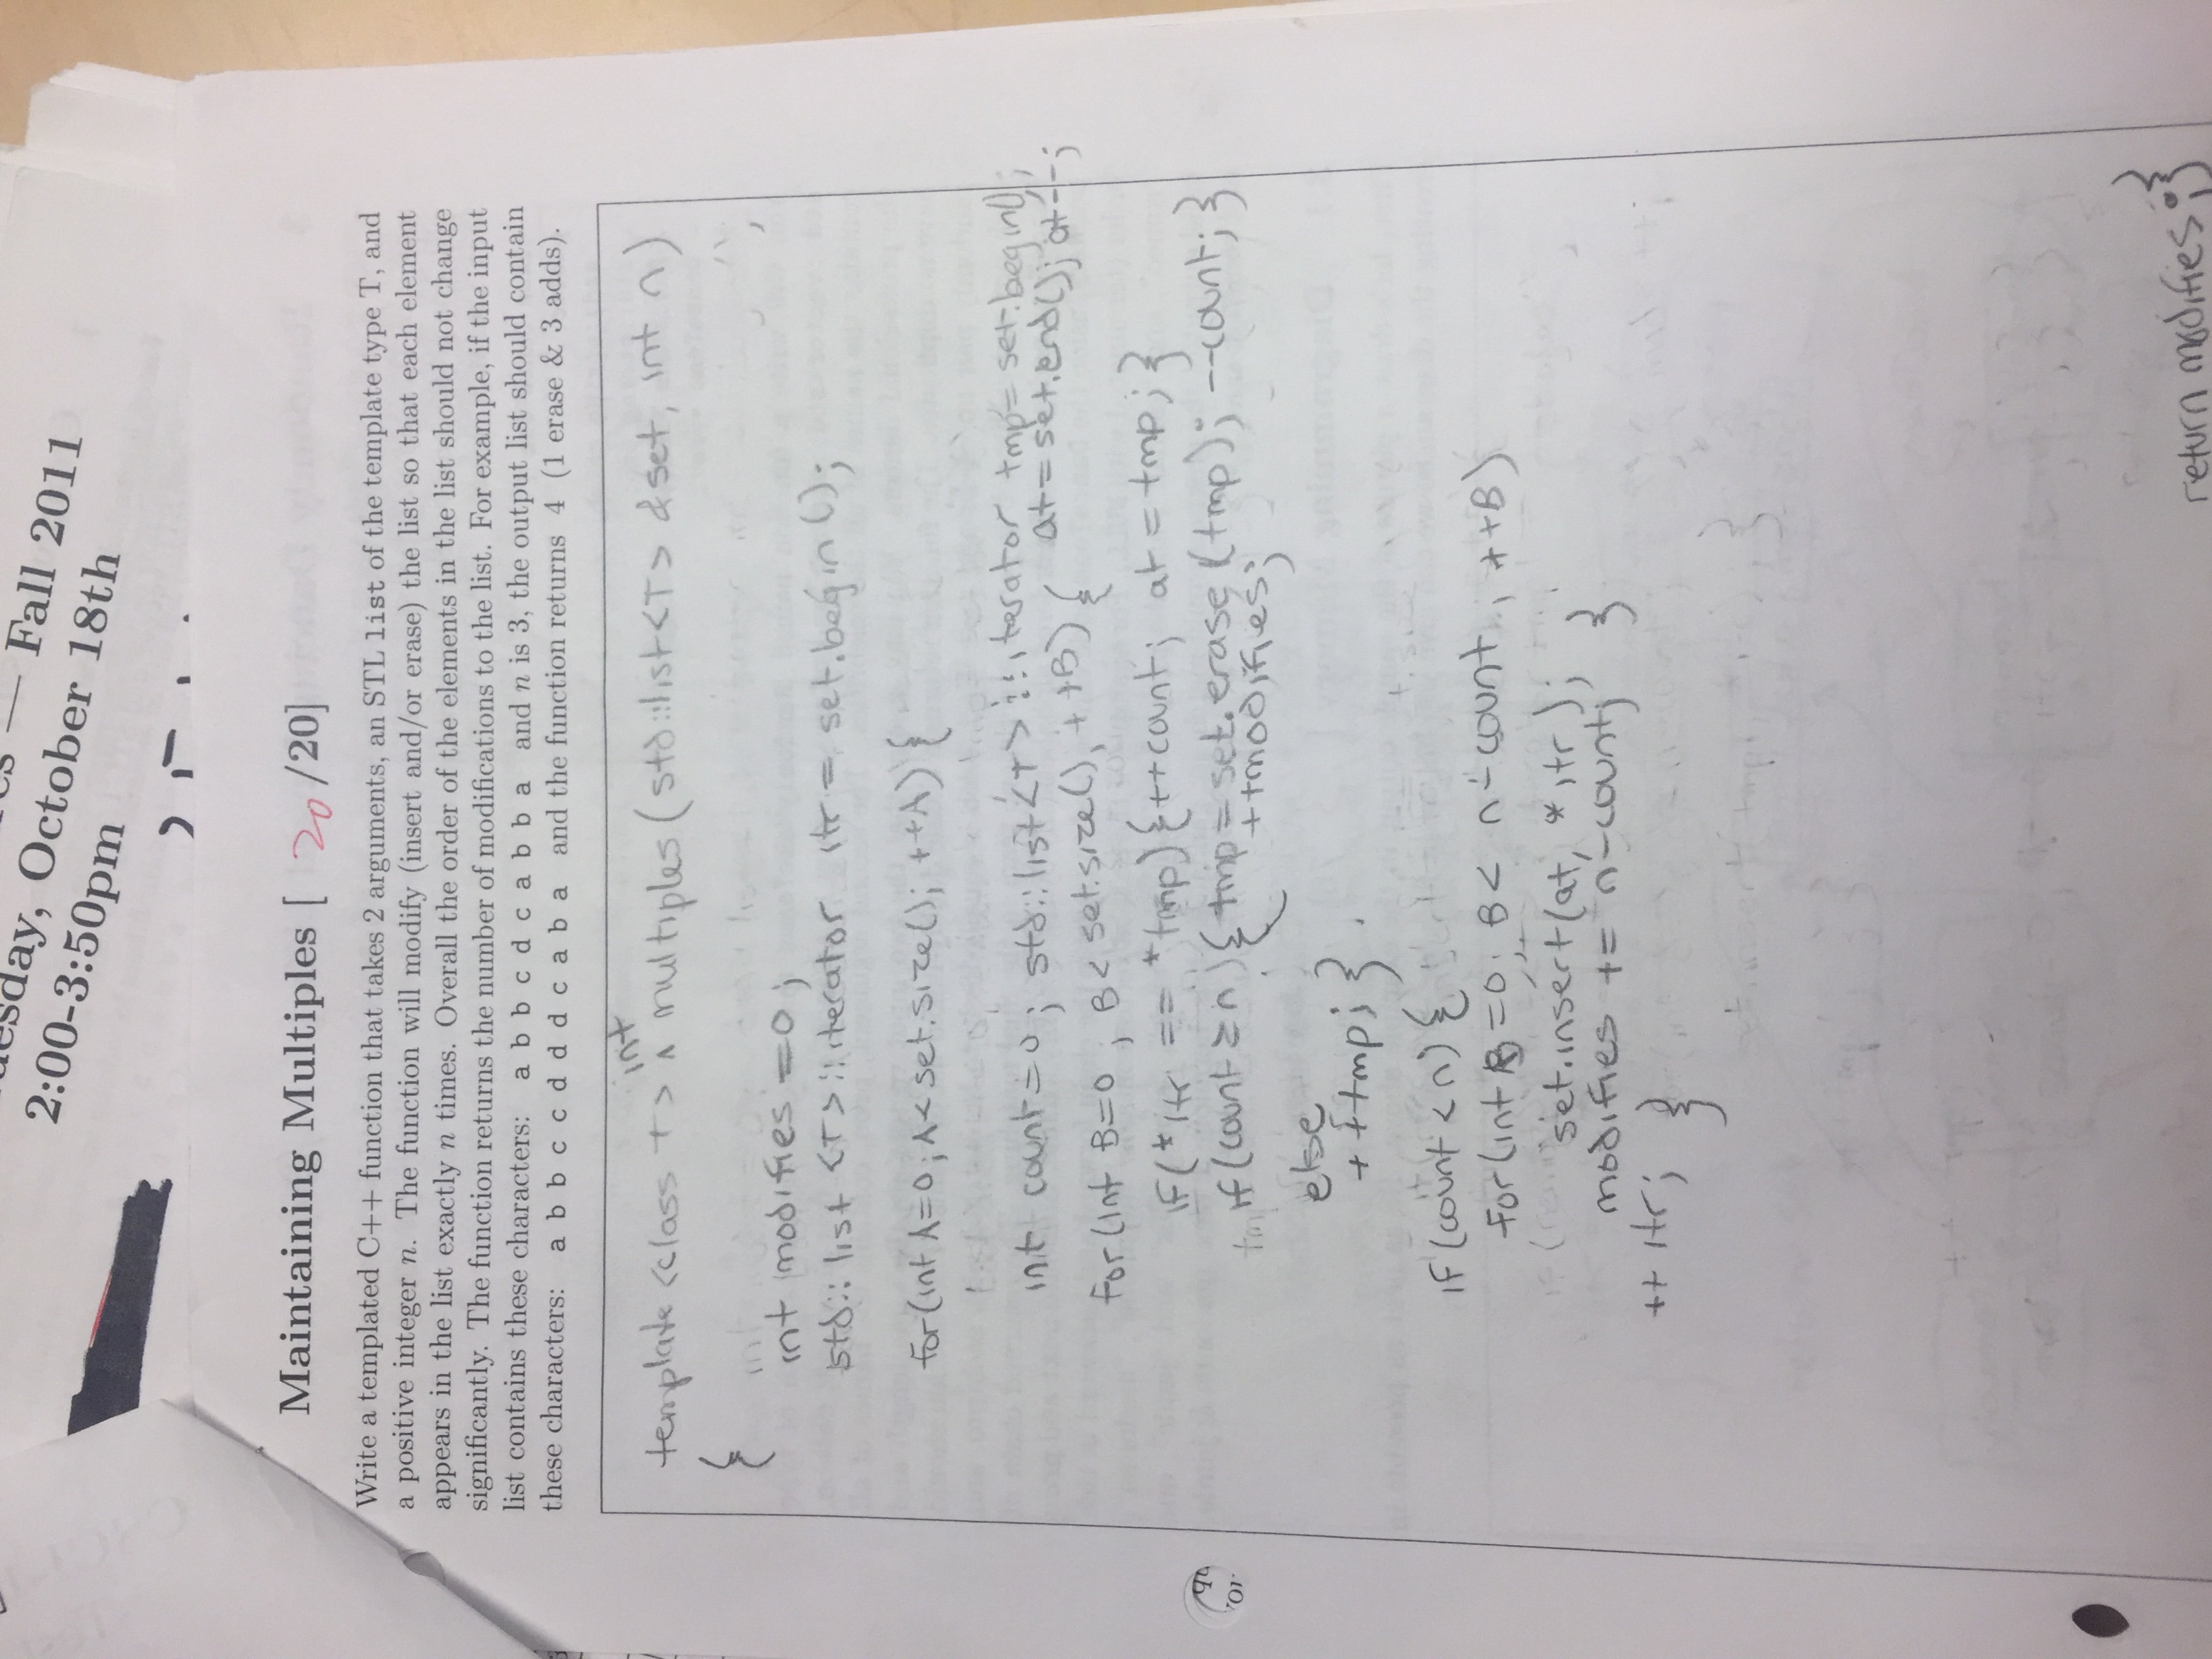 — Fall 2011
Tuesday, October 18th
2:00-3:50pm
Maintaining Multiples [ 20 /20]
Write a templated C++ function that takes 2 arguments, an STL list of the template type T, and
a positive integer n. The function will modify (insert and/or erase) the list so that each element
appears in the list exactly n times. Overall the order of the elements in the list should not change
significantly. The function returns the number of modifications to the list. For example, if the input
list contains these characters: a b b c d c a b b a and n is 3, the output list should contain
these characters: a b b c c d d d c a b a and the function returns 4 (1 erase & 3 adds).
int
template <class T> ^ multiples (std::list<T> &set, int n)
{
int modifies = 0;
std::list <T>::iterator itr = set.begin();
for(int A=0; A< set.size(); ++A) {
int count=0; std::list<T>::iterator tmp= set.begin();
at= set.end(); at--;
for(int B=0; B< set.size(), ++B) {
if(*itr == *tmp) {++count; at = tmp; }
if(count ≥ n) { tmp = set.erase (tmp); --count; }
++modifies;
else
++tmp; }
if (count < n) {
for(int B=0; B< n-count; ++B)
set.insert(at, *itr);
modifies += n-count; }
++ itr; }
return modifies; }